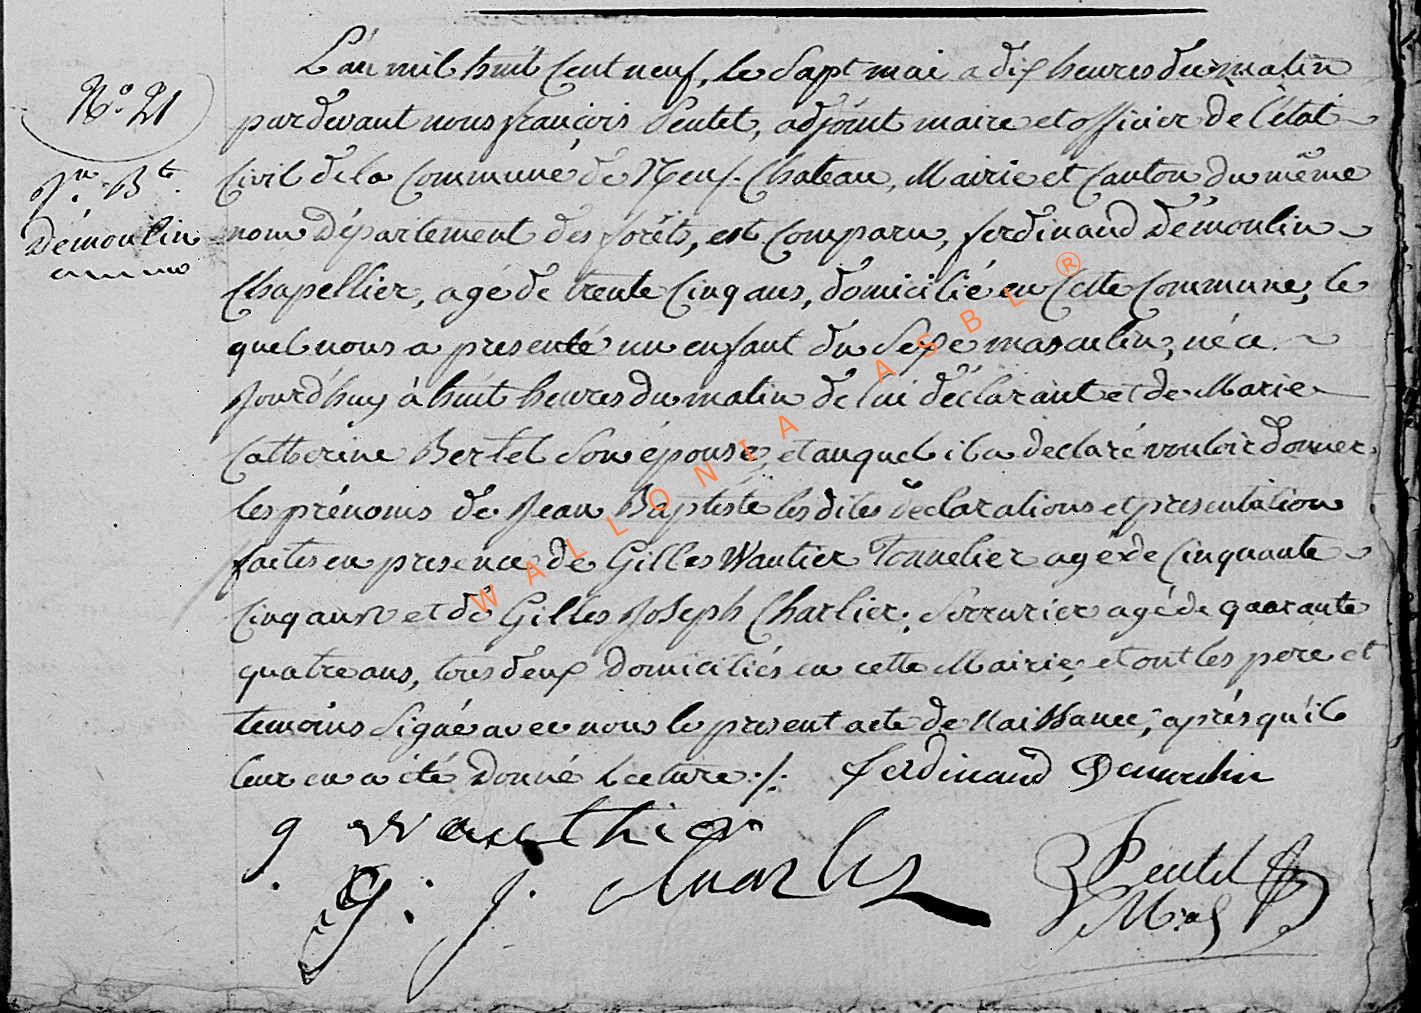 L'an mil huit Cent neuf, le Sept mai a dix heures du matin
N° 21
pardevant nous françois Pentel, adjoint maire et officier de l'état
Civil de la Commune de Neuf-Chateau, Mairie et Canton du même
Jn. Bte.
Démoulin
nom Département des forêts, est Comparu, ferdinand Démoulin
Chapellier, agé de trente Cinq ans, domicilié en Cette Commune, le
quel nous a presenté un enfant du Sexe masculin, né ce
Jourd'huy à huit heures du matin de lui déclarant et de Marie
Catherine Bertel Son épouse, et auquel il a declaré vouloir donner
les prénoms de Jean Baptiste les dites déclarations et presentation
faites en presence de Gilles Wautier Tonnelier agé de Cinquante
Cinq ans et de Gilles Joseph Charlier, Serrurier agé de quarante
quatre ans, tous deux domiciliés en cette Mairie, et ont les pere et
temoins Signé avec nous le present acte de Naissance, après qu'il
leur en a été Donné Lecture ./. ferdinand Demoulin
g wauthier
g. j. charlier
Pentel
WALLONIA ASBL ®